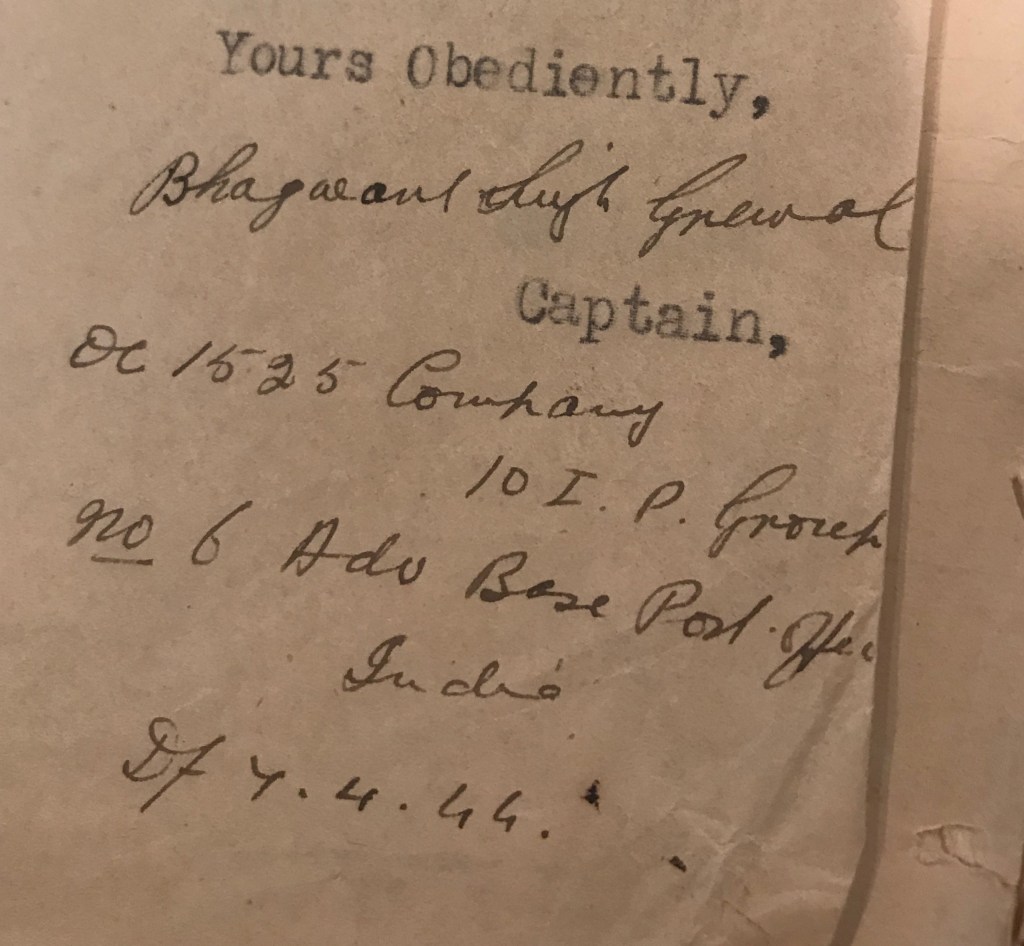 Yours Obediently,
Bhagwant Singh Grewal
Captain,
OC 1525 Company
10 I. P. Group
No 6 Adv Base Post. Office
India
Dt 7.4.44.